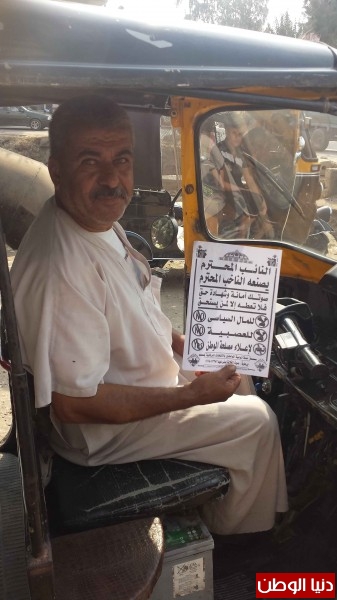 النائب المحترم
يصنعه الناخب المحترم
صوتك أمانة وشهادة حق
فلا تعطه إلا لمن يستحق
للمال السياسى
للعصبية
لإعلاء مصلحة الوطن
دنيا الوطن